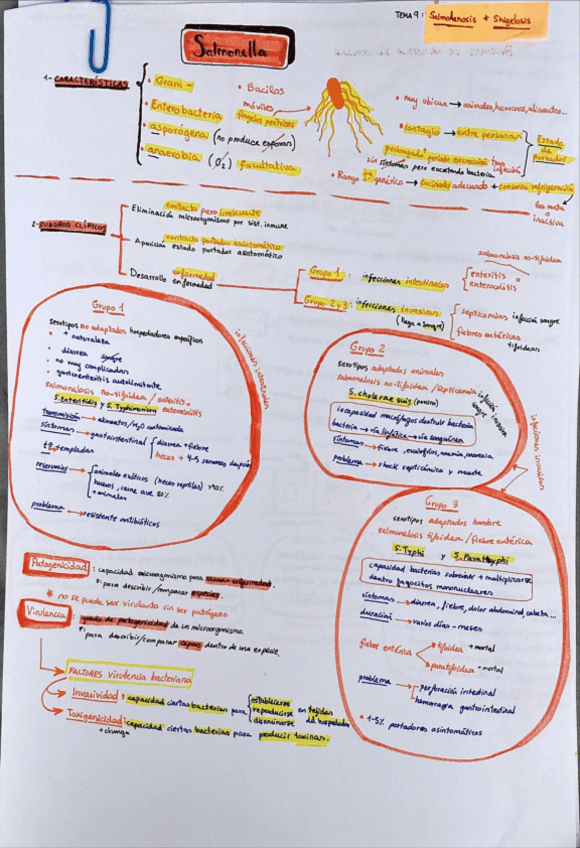 TEMA 9: Salmolenosis + Shigelosis
Salmonella
1- CARACTERÍSTICAS
• Gram -
• Enterobacteria
• asporógena (no produce esporas)
• anaerobia (O2) facultativa
• Bacilos
móviles
flagelos perítricos
• muy ubicua → animales, humanos, alimentos...
• contagio → entre personas
prolongado periodo excreción tras infección
sin síntomas pero excretando bacteria
Estado de portador
• Rango tª genérico → cocinado adecuado + conserva refrigeración
las mata o inactiva
2- CUADROS CLÍNICOS
contacto pero irrelevante
Eliminación microorganismo por sist. inmune
contacto portador asintomático
Aparición estado portador asintomático
enfermedad
Desarrollo enfermedad
salmonelosis no-tifoidea
Grupo 1: infecciones intestinales
enteritis
enterocolitis
Grupo 2 y 3: infecciones invasivas
(llega a sangre)
septicemias infección sangre
fiebres entéricas
tifoideas
Grupo 1
serotipos no adaptados hospedadores específicos
• + naturaleza
• diarrea sangre
• no muy complicadas
• gastroenteritis autolimitante
salmonelosis no-tifoidea / enteritis
enterocolitis
S. enteritidis y S. Typhimurium
transmisión → alimentos/H2O contaminada
síntomas → gastrointestinal
diarrea + fiebre
heces + 4-5 semanas después
tª templadas
reservorios →
animales exóticos (heces reptiles) >90%
huevos, carne ave 50%
+ animales
problema → resistente antibióticos
infecciones intestinales
Grupo 2
serotipos adaptados animales
salmonelosis no-tifoidea / septicemia
infección invasiva sangre
S. cholerae suis (porcino)
incapacidad macrófagos destruir bacteria
bacteria → vía linfática → vía sanguínea
síntomas → fiebre, escalofríos, anemia, anorexia
problema → shock septicémico y muerte
infecciones invasivas
Grupo 3
serotipos adaptados hombre
salmonelosis tifoidea / fiebre entérica
S. Typhi y S. Paratyphi
capacidad bacterias sobrevivir + multiplicarse
dentro fagocitos mononucleares
síntomas → diarrea, fiebre, dolor abdominal, cabeza...
duración → varios días - meses
fiebre entérica
tifoidea + mortal
paratifoidea - mortal
problema
perforación intestinal
hemorragia gastrointestinal
• 1-5% portadores asintomáticos
Patogenicidad: capacidad microorganismo para causar enfermedad.
F: para describir/comparar especies.
* no se puede ser virulento sin ser patógeno
Virulencia: grado de patogenicidad de un microorganismo.
F: para describir/comparar cepas dentro de una especie.
FACTORES virulencia bacteriana
Invasividad: capacidad ciertas bacterias para
establecerse
reproducirse en tejidos
diseminarse del hospedador
Toxigenicidad: capacidad ciertas bacterias para producir toxinas.
+ chunga